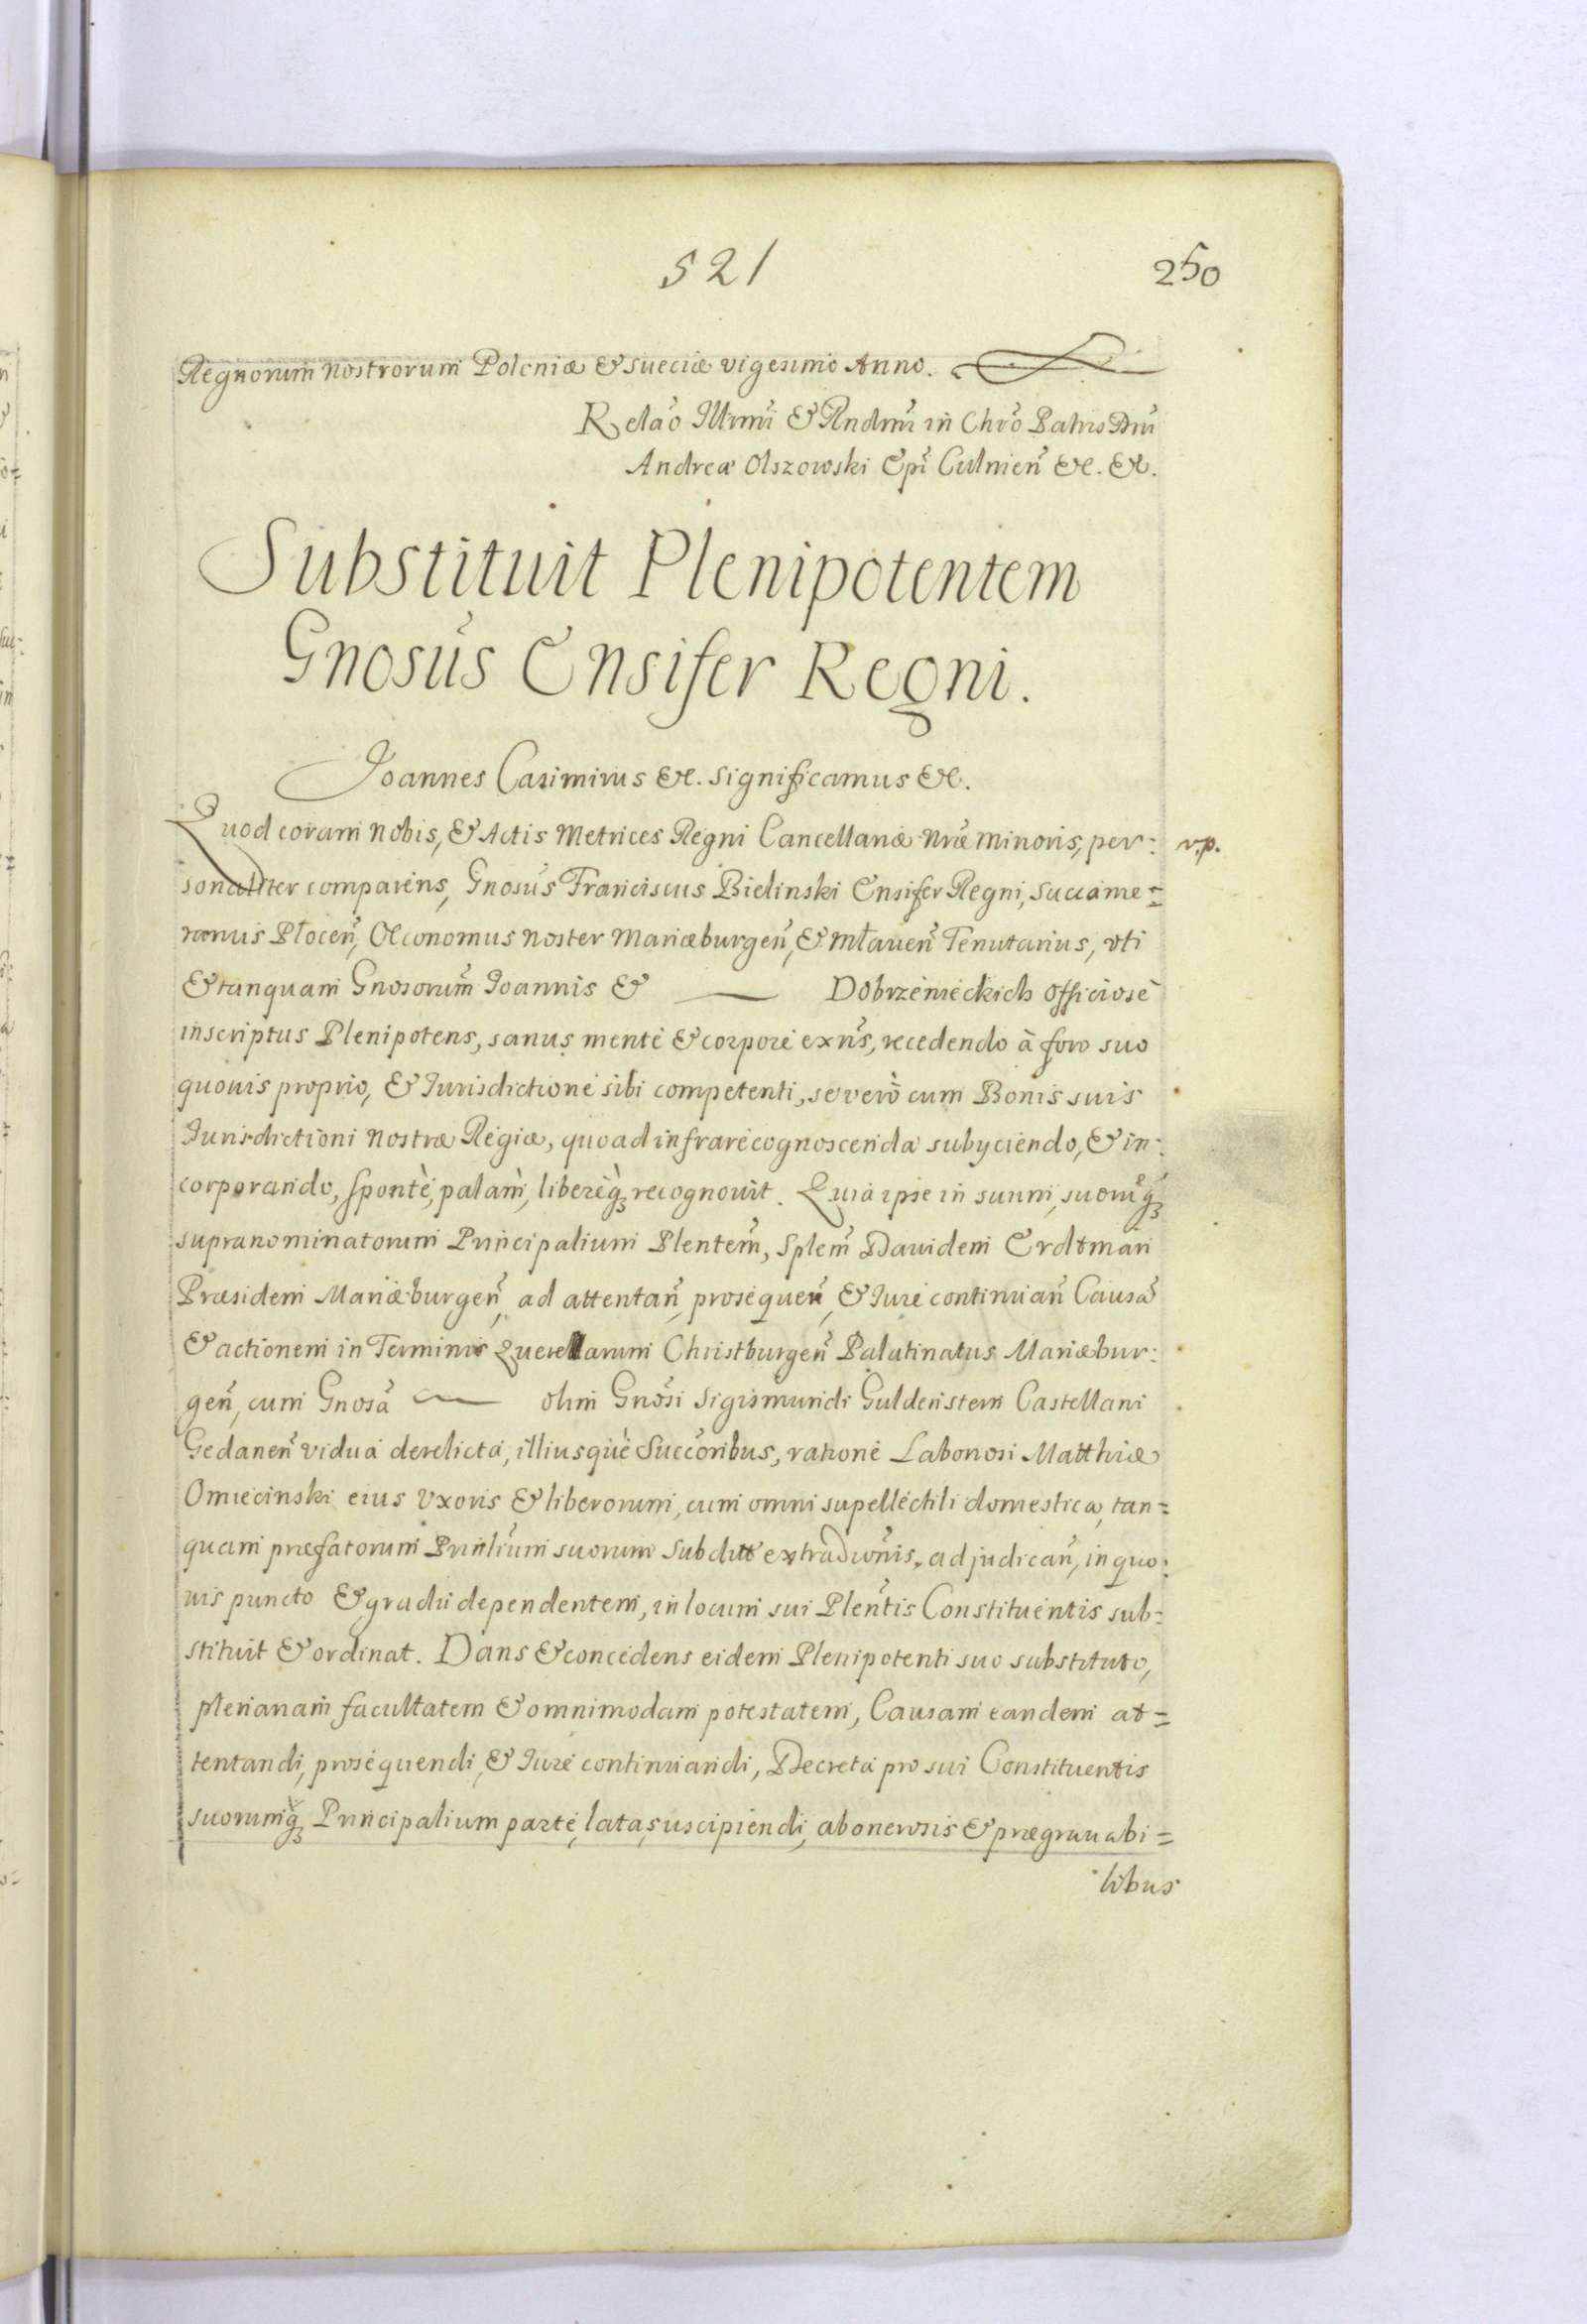 521
250
Regnorum nostrorum Poloniæ & Sueciæ vigesimo Anno.
Relaõ Illrmĩ & Rndmĩ in Chrõ Patris Dnĩ
Andreæ Olszowski Epĩ Culmieñ &c. &c.
Substituit Plenipotentem
Gnosũs Ensifer Regni.
Joannes Casimirus &c. Significamus &c.
Quod coram nobis, & Actis Metrices Regni Cancellariæ nræ minoris, per:
v.p.
sonaliter comparens, Gnosũs Franciscus Bielinski Ensifer Regni, Succame=
rarius Płoceñ, Oeconomus noster Mariæburgeñ, & Młaueñ Tenutarius, vti
& tanquam Gnosorum̃ Joannis & — Dobrzenieckich officiosè
inscriptus Plenipotens, sanus mente & corpore exñs, recedendo à foro suo
quouis proprio, & Jurisdictione sibi competenti, se verò cum Bonis suis
Jurisdictioni nostræ Regiæ, quoad infrarecognoscenda subyciendo, & in:
corporando, spontè, palam̀, liberèq̃ recognouit. Quia ipse in suum, suorũq̃
supranominatorum Principalium Plentem̃, Splem̃ Dauidem Erdtman
Præsidem Mariæburgeñ, ad attentañ, prosequeñ, & Jure continuañ Causã
& actionem in Terminis Querellarum Christburgeñ Palatinatus Mariæbur:
geñ, cum Gnosã — olim Gnõsi Sigismundi Guldenstern Castellani
Gedaneñ vidua derelicta, illiusque Succõribus, ratione Laboriosi Matthiæ
Omiecinski eius Vxoris & liberorum, cum omni supellectili domestica, tan=
quam præfatorum Prinlĩum suorum Subditt extradiõnis, adjudicañ, in quo:
uis puncto & gradu dependentem, in locum sui Pleñtis Constituentis sub=
stituit & ordinat. Dans & concedens eidem Plenipotenti suo substituto,
plenariam facultatem & omnimodam potestatem, Causam eandem at=
tentandi, prosequendi, & Jure continuandi, Decreta pro sui Constituentis
suorumq̃ Principalium parte, lata, suscipiendi, ab onerosis & prægrauabi=
libus